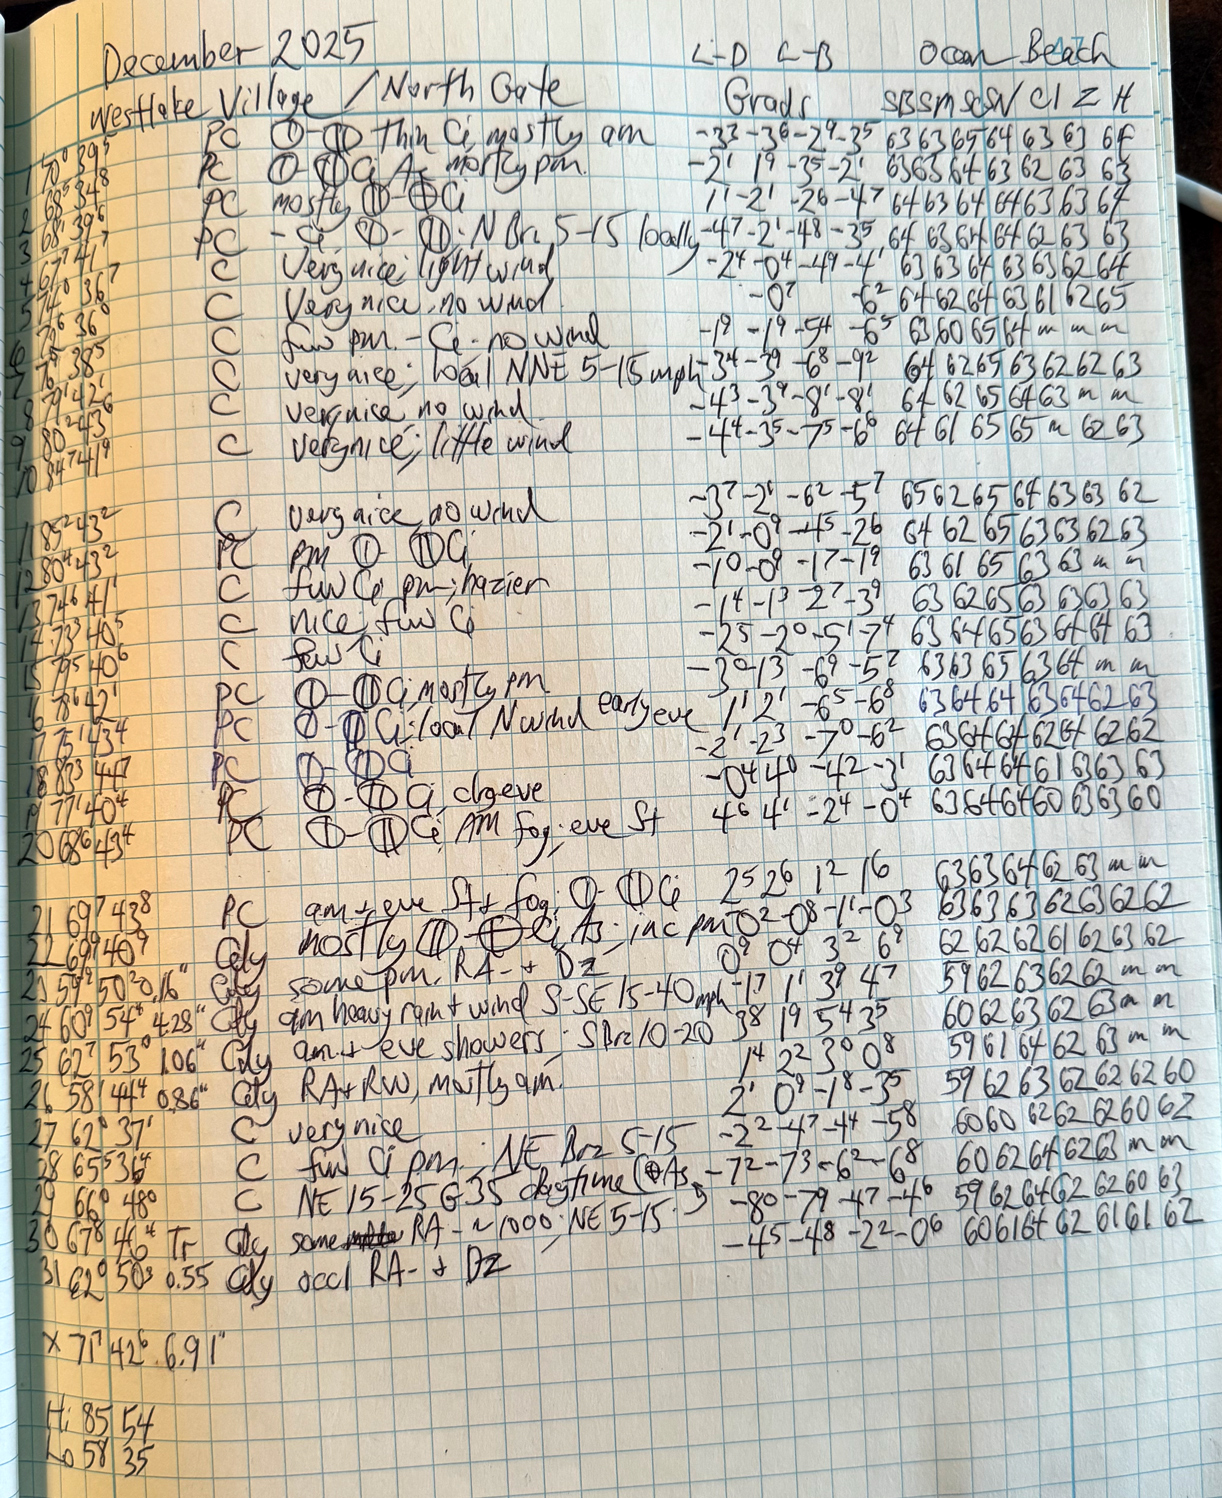 December 2025 L-D L-B Ocean Beach
Westlake Village / North Gate Grads SB SM SC SN CI Z H
1 70⁰ 39⁵ PC ⦶-⦷ Thin Ci, mostly am -3³ -3⁶ -2⁹ -3⁵ 63 63 65 64 63 63 64
2 68⁵ 34⁸ PC ⦶-⦷ Ci As mostly pm. -2¹ 1⁹ -3⁵ -2¹ 63 63 64 63 62 63 63
3 68¹ 39⁶ PC mostly ⦷-⊕ Ci 1¹ -2¹ -2⁶ -4⁷ 64 63 64 64 63 63 64
4 67⁷ 41⁷ PC - Ci ⦶-⦷; N Brz 5-15 locally -4⁷ -2¹ -4⁸ -3⁵ 64 63 64 64 62 63 63
5 74⁰ 36⁷ C Very nice; light wind -2⁴ -0⁴ -4⁹ -4¹ 63 63 64 63 63 62 64
6 36⁰ C Very nice, no wind -0⁷ -6² 64 62 64 63 61 62 65
7 38⁵ C few pm - Ci - no wind -1⁹ -1⁹ -5⁴ -6⁵ 63 60 65 64 m m m
8 79¹ 42⁶ C very nice; local NNE 5-15 mph -3⁴ -3⁹ -6⁸ -9² 64 62 65 63 62 62 63
9 80² 43⁶ C very nice, no wind -4³ -3⁹ -8¹ -8¹ 64 62 65 64 63 m m
10 84⁷ 41⁹ C very nice; little wind -4⁴ -3⁵ -7⁵ -6⁶ 64 61 65 65 m 62 63
11 85² 43² C very nice, no wind -3⁷ -2¹ -6² -5⁷ 65 62 65 64 63 63 62
12 80⁴ 43² PC pm ⦶-⦷ Ci -2¹ -0⁹ -4⁵ -2⁶ 64 62 65 63 63 62 63
13 74⁶ 41¹ C few Ci pm; hazier -1⁰ -0⁹ -1⁷ -1⁹ 63 61 65 63 63 m m
14 73³ 40⁵ C nice, few Ci -1⁴ -1³ -2⁷ -3⁹ 63 62 65 63 63 63 63
15 79⁵ 40⁶ C few Ci -2⁵ -2⁰ -5¹ -7⁴ 63 64 65 63 64 64 63
16 78⁶ 42¹ PC ⦶-⦷ Ci, mostly pm -3⁰ -1³ -6⁹ -5² 63 63 65 63 64 m m
17 75¹ 43⁴ PC ⦶-⦷ Ci; local N wind early eve 1¹ 2¹ -6⁵ -6⁸ 63 64 64 63 64 62 63
18 83³ 44⁷ PC ⦶-⦷ Ci -2¹ -2³ -7⁰ -6² 63 64 64 62 64 62 62
19 77¹ 40⁴ PC ⦶-⦷ Ci, clr eve -0⁴ 4⁰ -4² -3¹ 63 64 64 61 63 63 63
20 68⁶ 43⁴ PC ⦶-⦷ Ci, AM fog; eve St 4⁶ 4¹ -2⁴ -0⁴ 63 64 64 60 63 63 60
21 69⁷ 43⁸ PC am + eve St + fog; ⦶-⦷ Ci 2⁵ 2⁶ 1² 1⁶ 63 63 64 62 63 m m
22 69⁹ 40⁹ Cdy mostly ⦷-⊕ Ci, As; inc pm -0² -0⁸ -1¹ -0³ 63 63 63 62 63 62 62
23 59² 50² 0.16" Cdy some pm. RA- + Dz 0⁹ 0⁴ 3² 6⁹ 62 62 62 61 62 63 62
24 60⁹ 54⁶ 4.28" Cdy am heavy rain + wind S-SE 15-40 mph -1⁷ 1¹ 3⁹ 4⁷ 59 62 63 62 62 m m
25 62⁷ 53⁰ 1.06" Cdy am + eve showers; S Brz 10-20 3⁸ 1⁹ 5⁴ 3⁵ 60 62 63 62 63 m m
26 58¹ 44⁴ 0.86" Cdy RA + RW, mostly am. 1⁴ 2² 3⁰ 0⁸ 59 61 64 62 63 m m
27 62⁰ 37¹ C very nice 2¹ 0⁹ -1⁸ -3⁵ 59 62 63 62 62 62 60
28 65⁵ 36⁴ C few Ci pm; NE Brz 5-15 -2² -4⁷ -4⁴ -5⁸ 60 60 62 62 62 60 62
29 66⁰ 48⁰ C NE 15-25 G 35 daytime (⊕ As -7² -7³ -6² -6⁸ 60 62 64 62 63 m m
30 67⁸ 46⁴ Tr Cdy some RA- ~1000; NE 5-15 -8⁰ -7⁹ -4⁷ -4⁶ 59 62 64 62 62 60 63
31 62⁰ 50³ 0.55 Cdy occl RA- + Dz -4⁵ -4⁸ -2² -0⁶ 60 61 64 62 61 61 62
x 71⁷ 42⁶ 6.91"
Hi 85 54
Lo 58 35